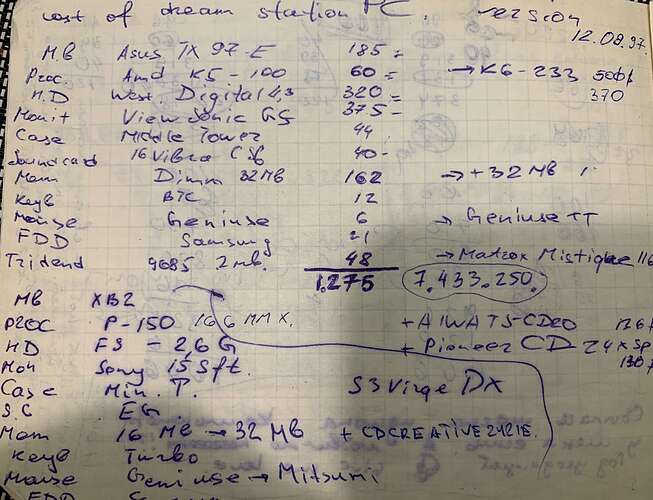 cost of dream station PC. version
12.08.97.
MB Asus TX 97-E 185=
Proc. Amd K5-100 60= → K6-233
370
H.D West. Digital 4,3 320=
Monit ViewSonic G5 375-
Case Middle Tower 44
Soundcard 16 Vibra C 40-
Mem Dimm 32MB 162 → +32 MB
Keyb BTC 12
Mouse Geniuse 6 → Geniuse TT
FDD Samsung 21
Tridend 9685 2 mb. 48 → Matrox Mistique 116
1.275 7.433.250.
MB XB2
Proc P-150 166 MMX. + AIWA
HD FS - 2,6 G + Pioneer CD 24x sp
130
Mon Sony 15 Sft.
Case Min. T. S3 Virge DX
S.C EG
Mem 16 MB → 32 MB + CDCREATIVE 2421E.
Keyb Turbo
Mouse Geniuse → Mitsumi
FDD